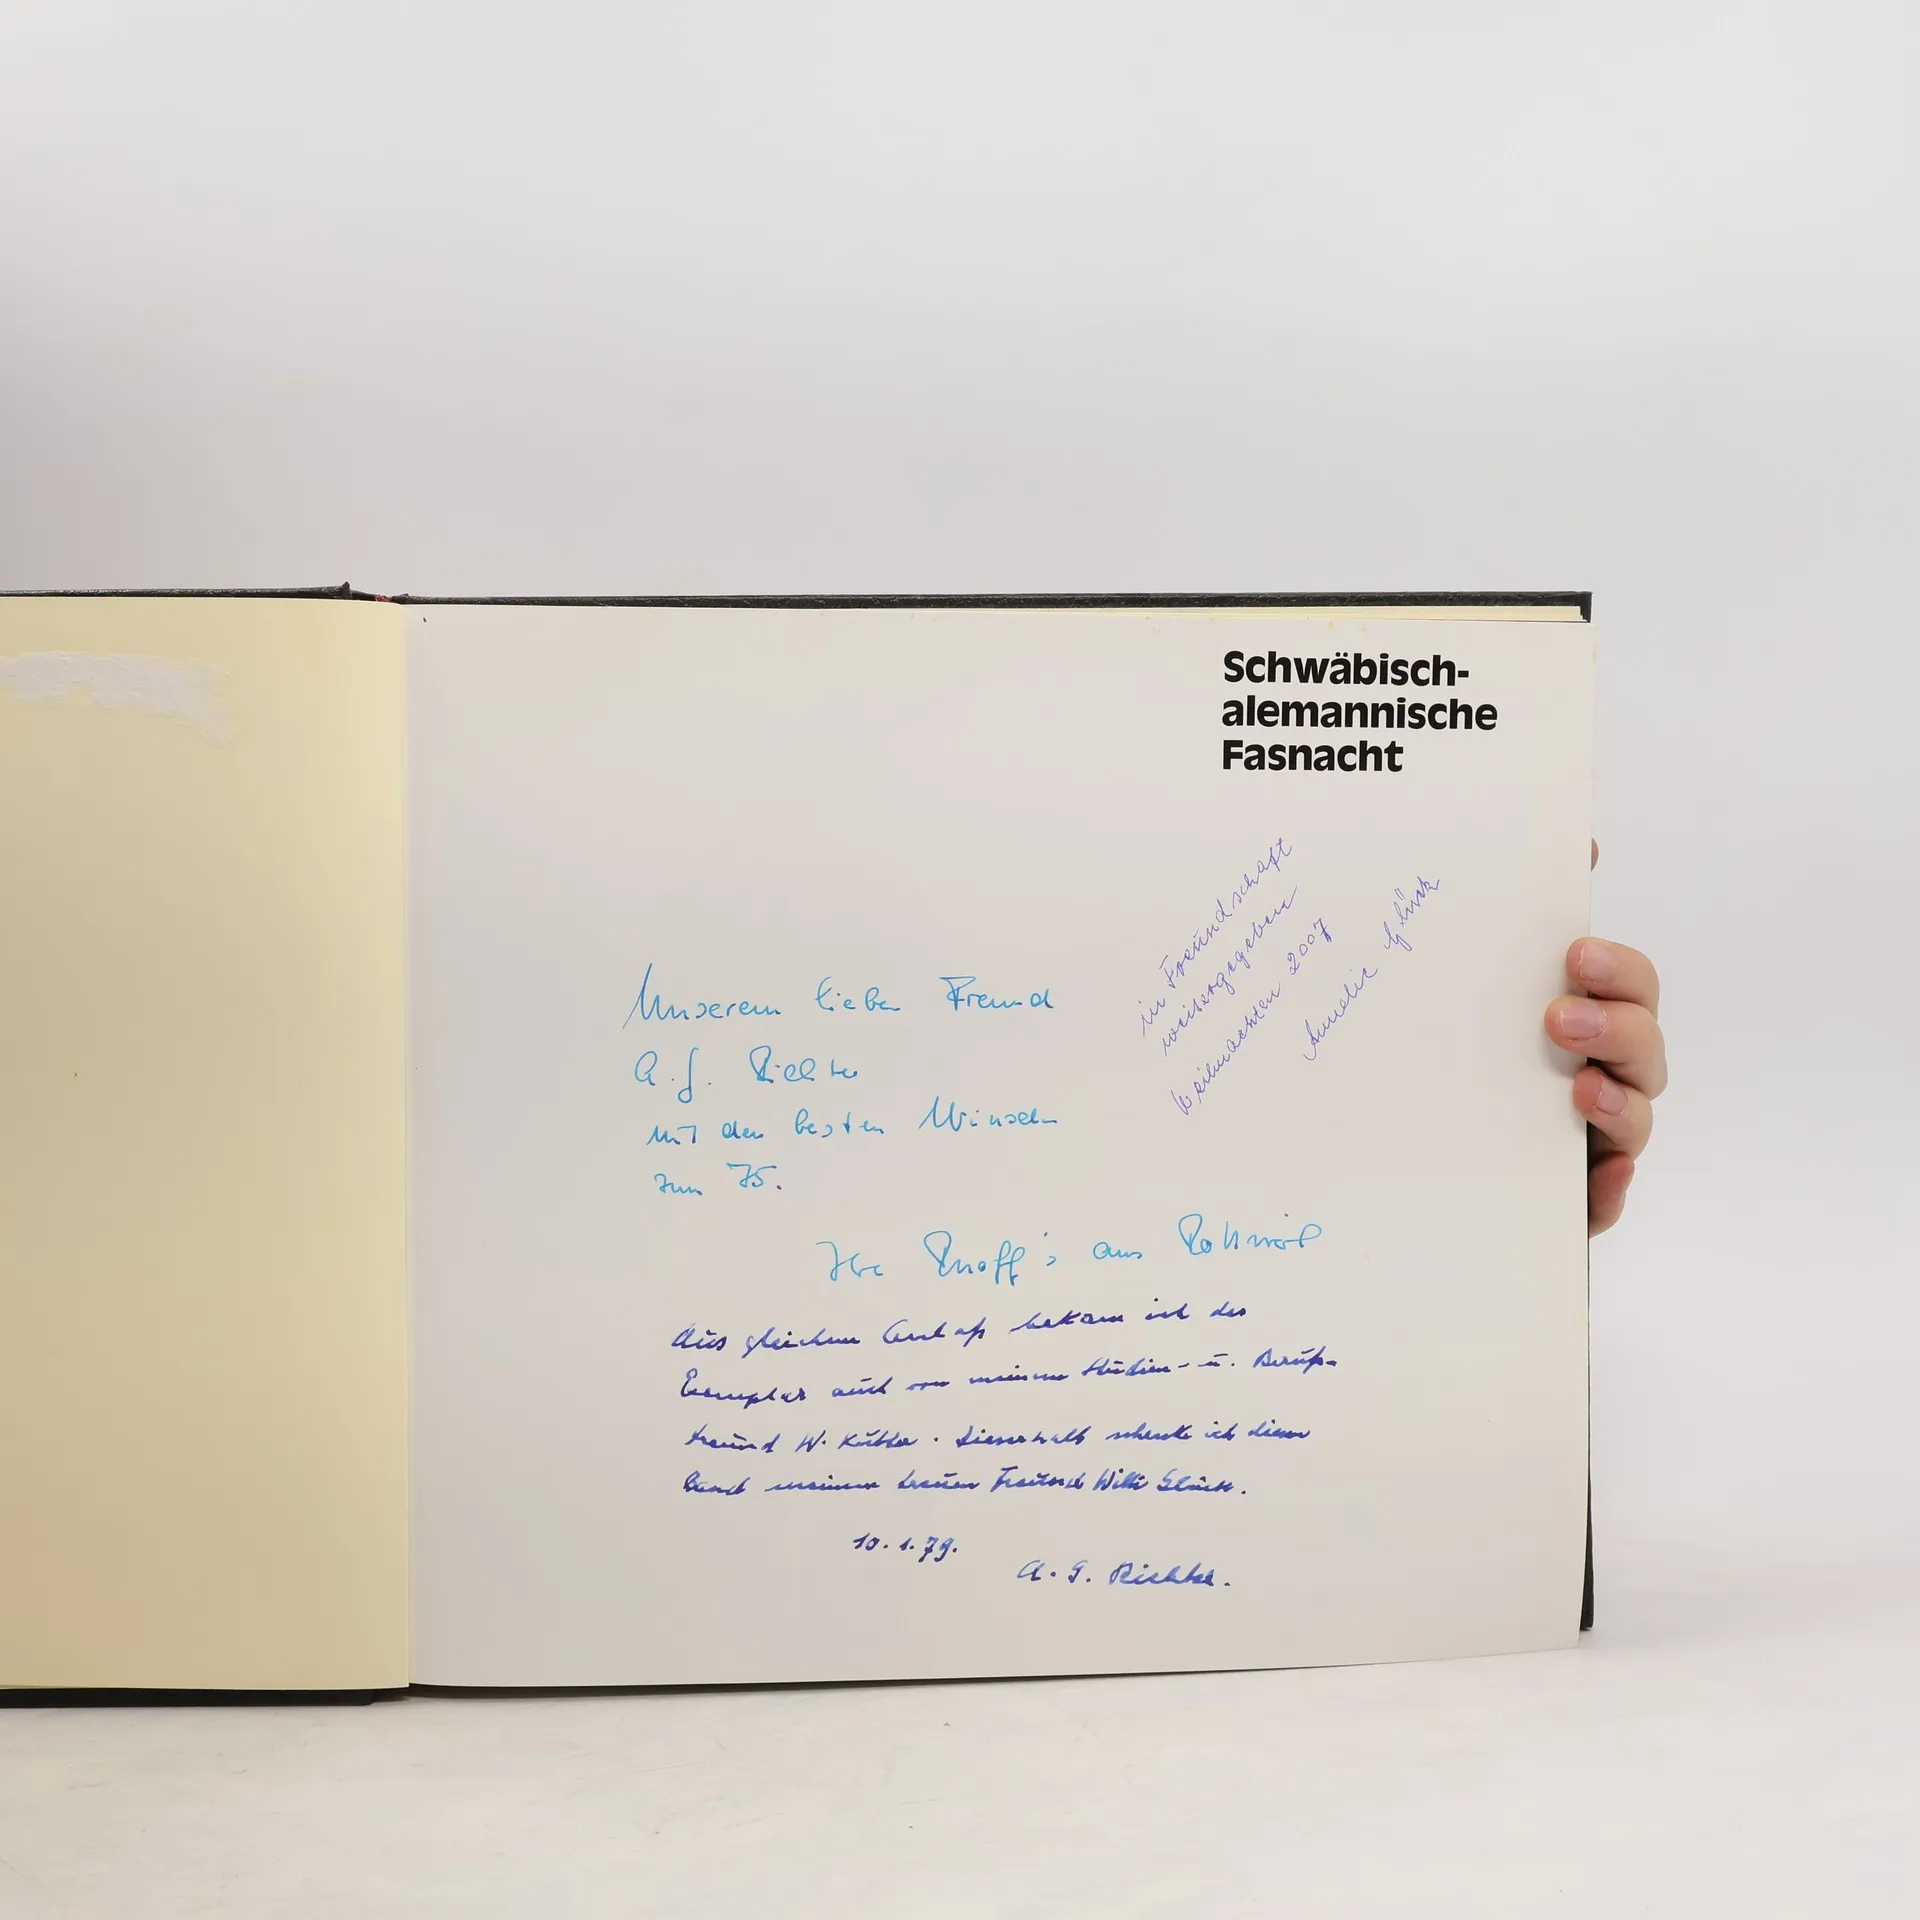 Schwäbisch-
alemannische
Fasnacht
in Freundschaft
weitergegeben
Weihnachten 2007
Annelie Glück
Unserem lieben Freund
A. G. Richter
mit den besten Wünschen
zum 75.
Ihre aus Rottweil
Aus gleichem Anlaß bekam ich das
Exemplar auch von meinem Studien- u. Berufs-
freund W. Kübler. Dieserhalb schenke ich diesen
Band meinem treuen Freund Willi Glück.
10. 1. 79.
A. G. Richter.